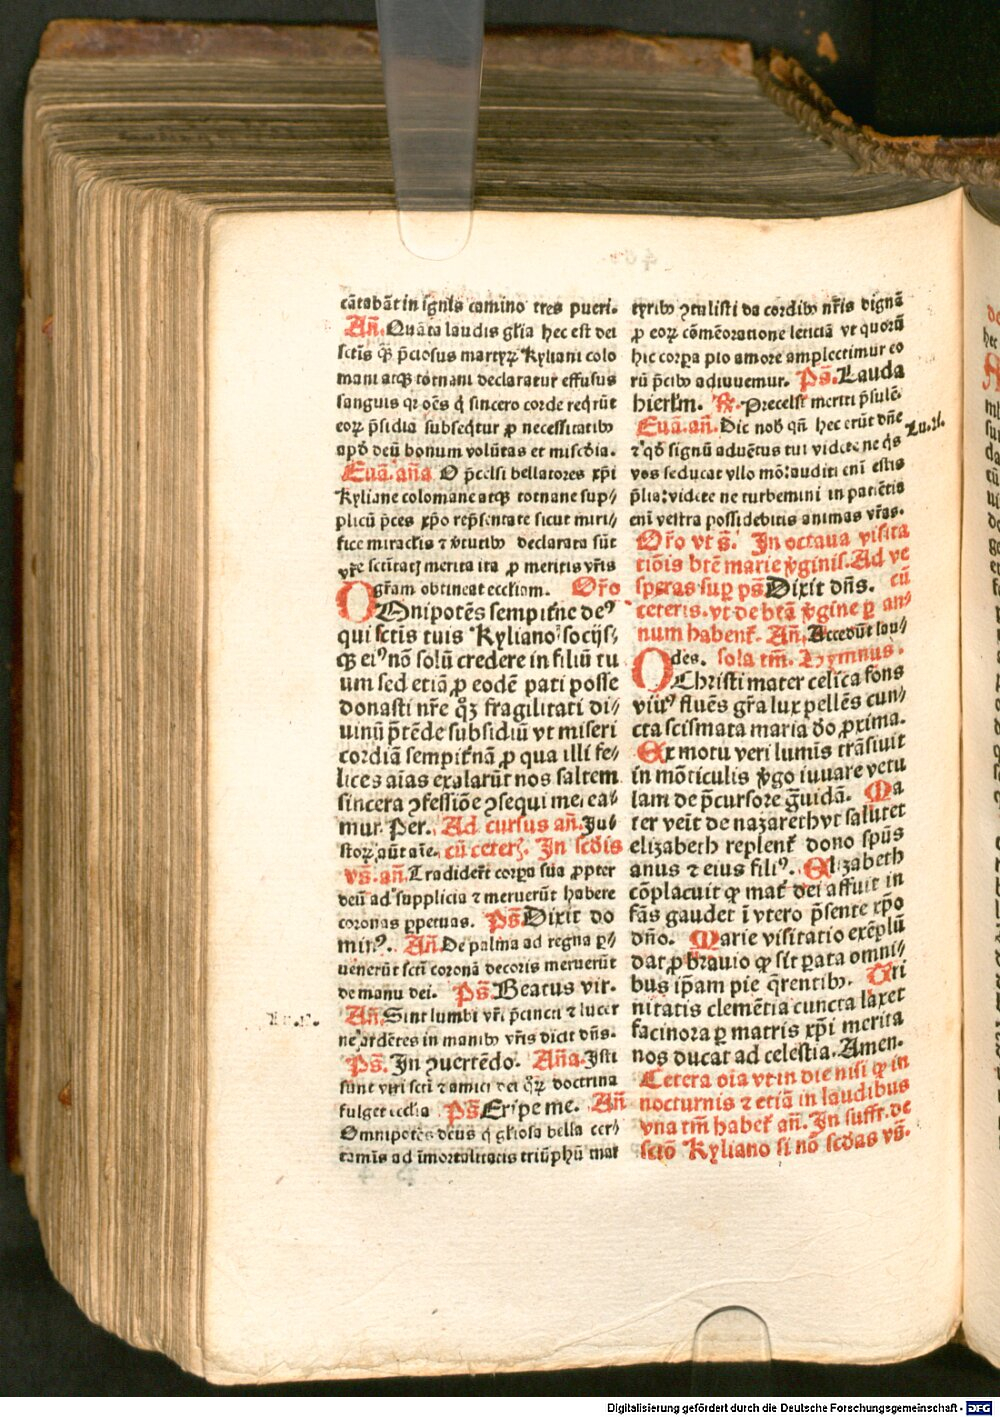 cātabāt in ignis camino tres pueri.
An̄. Quāta laudis gl̄ia hec est dei
sctīs qꝫ p̄ciosus martyꝝ Kyliani colo
mani atqꝫ totnani declaratur effusus
sanguis qr oēs q̇ sincero corde reqrūt
eoꝝ p̄sidia subseq̇tur ꝓ necessitatibꝰ
apd̄ deū bonum volūtas et misc̄dia.
Euā. an̄a O p̄celsi bellatores xp̄i
Kyliane colomane atqꝫ totnane sup⸗
plicū p̄ces xp̄o rep̄sentate sicut miri⸗
fice miraclis ⁊ v̇tutibꝰ declarata sūt
vr̄e sctītatꝭ merita ita ꝓ meritis vr̄is
gr̄am obtineat eccliam. Or̄o
OMnipotēs sempitn̄e deꝰ
qui sctīs tuis Kylianoꝫ socijs⸗
qꝫ eiꝰ nō solū credere in filiū tu
um sed etiā ꝓ eodē pati posse
donasti nr̄e qꝫ fragilitati di⸗
uinū p̄tēde subsidiū vt miseri
cordiā sempit̄nā ꝓ qua illi fe⸗
lices aīas exalarūt nos saltem
sincera ꝯfessiōe ꝯsequi merea⸗
mur. Per. Ad cursus an̄. Ju⸗
stoꝝ aūt aīe. cū ceterꝭ. In scdīs
vs̄. an̄. Tradider̄t corpa sua ꝓpter
deū ad supplicia ⁊ meruerūt habere
coronas ꝑpetuas. Ps̄ Dixit do
minꝰ. An̄. De palma ad regna ꝑ⸗
uenerūt sctī coronā decoris meruerūt
de manu dei. Ps̄. Beatus vir.
An̄. Sint lumbi vr̄i p̄cincti ⁊ lucer
ne ardētes in manibꝰ vr̄is dicit dn̄s.
Ps̄. In ꝯuertēdo. An̄a. Isti
sunt viri sctī ⁊ amici dei qꝝ doctrina
fulget ecclīa Ps̄ Eripe me. An̄
Omnipotēs deus q̇ gl̄iosa bella cer⸗
tamīs ad īmortalitatis triūphū mar
Lu.xij.
tyribꝰ ꝯtulisti da cordibꝰ nr̄is dignā
ꝓ eoꝝ cōmēoratione leticiā vt quorū
hic corpa pio amore amplectimur eo
rū p̄cibꝰ adiuuemur. Ps̄. Lauda
hierl̄m. R̄. Precelsi meriti p̄sulē.
Euā. an̄. Dic nob̄ qn̄ hec erūt dn̄e
⁊ qd̄ signū aduētus tui videte ne q̇s
vos seducat vllo mō: audiri enī estis
p̄lia: videte ne turbemini in patiētia
enī vestra possidebitis animas vr̄as.
Lu.xxi.
Or̄o vt s̄. In octaua visita
tiōis btē marie v̇ginis. Ad ve
speras sup ps̄ Dixit dn̄s. cū
ceteris. vt de btā v̇gine ꝑ an⸗
num habent̄. An̄. Accedūt lau⸗
des. sola tm̄. Hymnus.
OChristi mater celica fons
viuꝰ fluēs gr̄a lux pellēs cun⸗
cta scismata maria dō ꝓxima.
Ex motu veri lumīs trāsiuit
in mōticulis v̇go iuuare vetu
lam de p̄cursore ḡuidā. Ma
ter veīt de nazareth vt salutet
elizabeth replent̄ dono spūs
anus ⁊ eius filiꝰ. Elizabeth
cōplacuit qꝫ mat̄ dei affuit in
fās gaudet ī vtero p̄sente xp̄o
dn̄o. Marie visitatio exēplū
dat ꝓ brauio qꝫ sit ꝑata omni⸗
bus ip̄am pie q̄rentibꝰ. Tri
nitatis clemētia cuncta laxet
facinora ꝑ matris xp̄i merita
nos ducat ad celestia. Amen.
Cetera oīa vt in die nisi qꝫ in
nocturnis ⁊ etiā in laudibus
vna tm̄ habet̄ an̄. In suffr. de
sctō Kyliano si nō scdās vs̄.
Digitalisierung gefördert durch die Deutsche Forschungsgemeinschaft - DFG